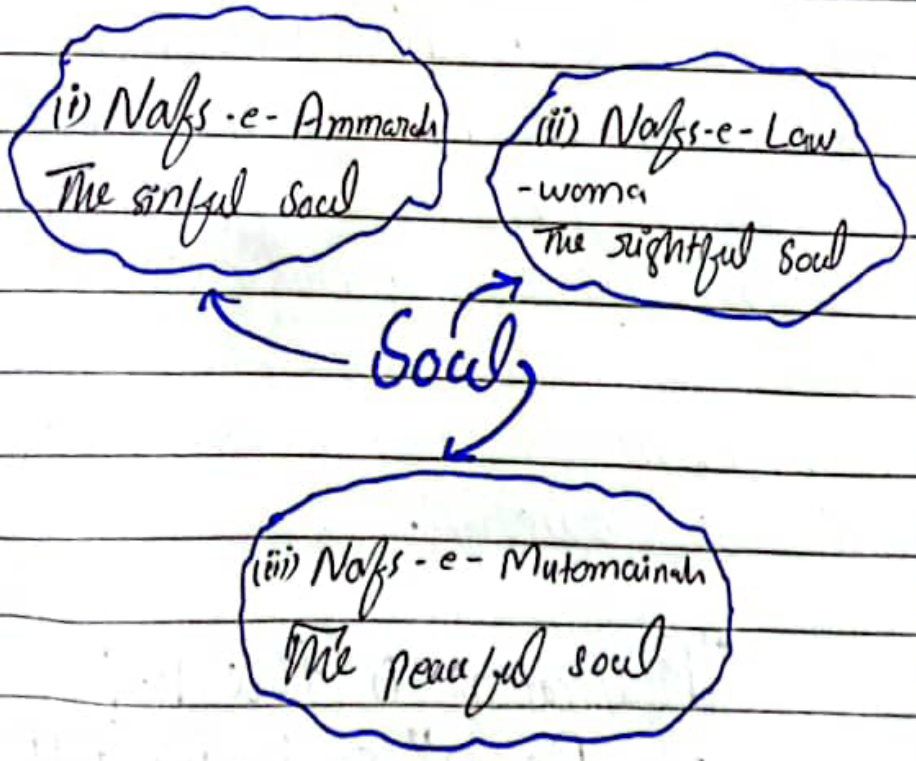 (i) Nafs -e- Ammarah
The sinful soul
(ii) Nafs-e-Law
-woma
The rightful soul
Soul
(iii) Nafs - e - Mutomainah
The peaceful soul